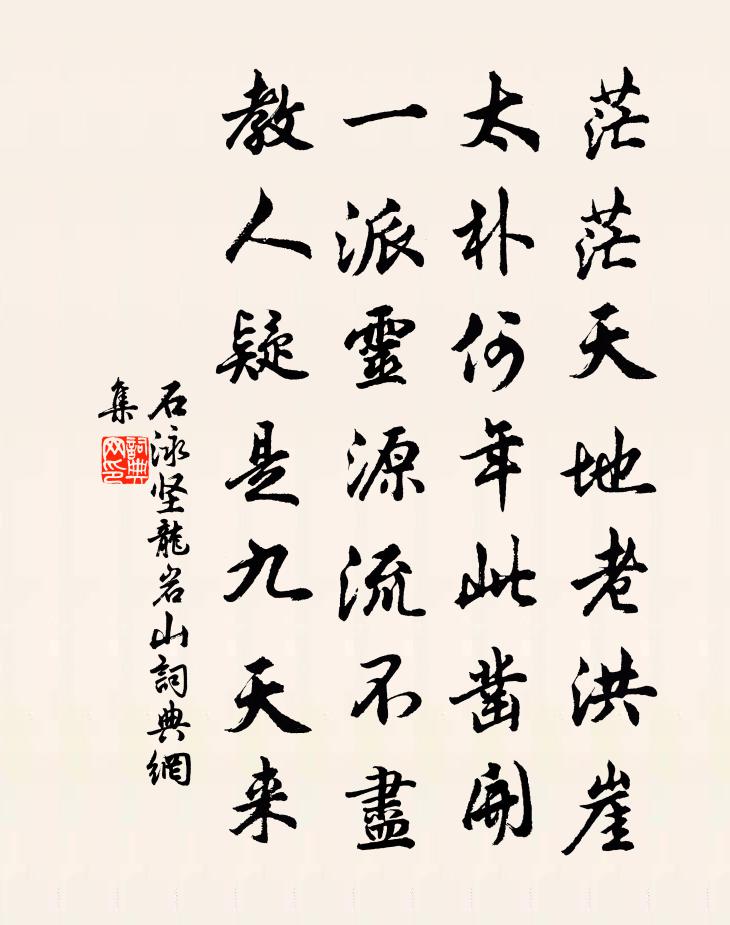 茫茫天地老洪崖
太朴何年此凿開
一派靈源流不盡
教人疑是九天来
石泳坚龍岩山詞典網
集
詞典
网印